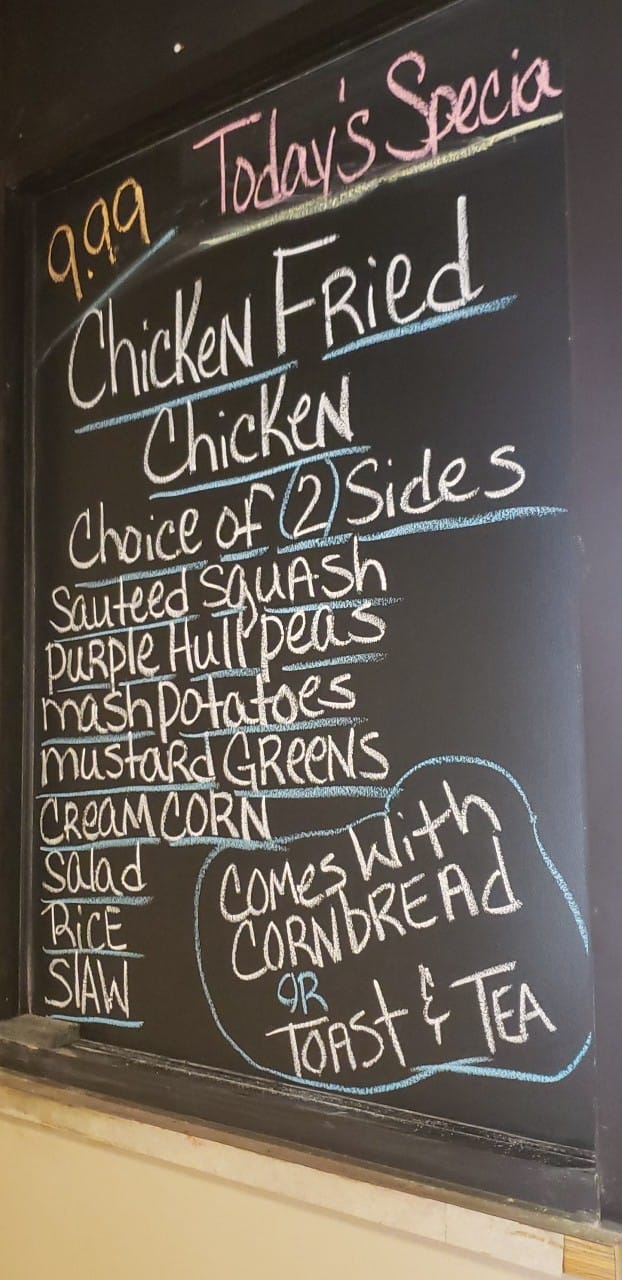 Today's Specia
9.99
Chicken Fried
Chicken
Choice of 2 Sides
Sauteed Squash
Purple Hull peas
mash potatoes
mustard GReeNS
CReam CORN
Salad
RiCE
SlAW
COMes With
CORNbREAd
OR
TOASt & TEA